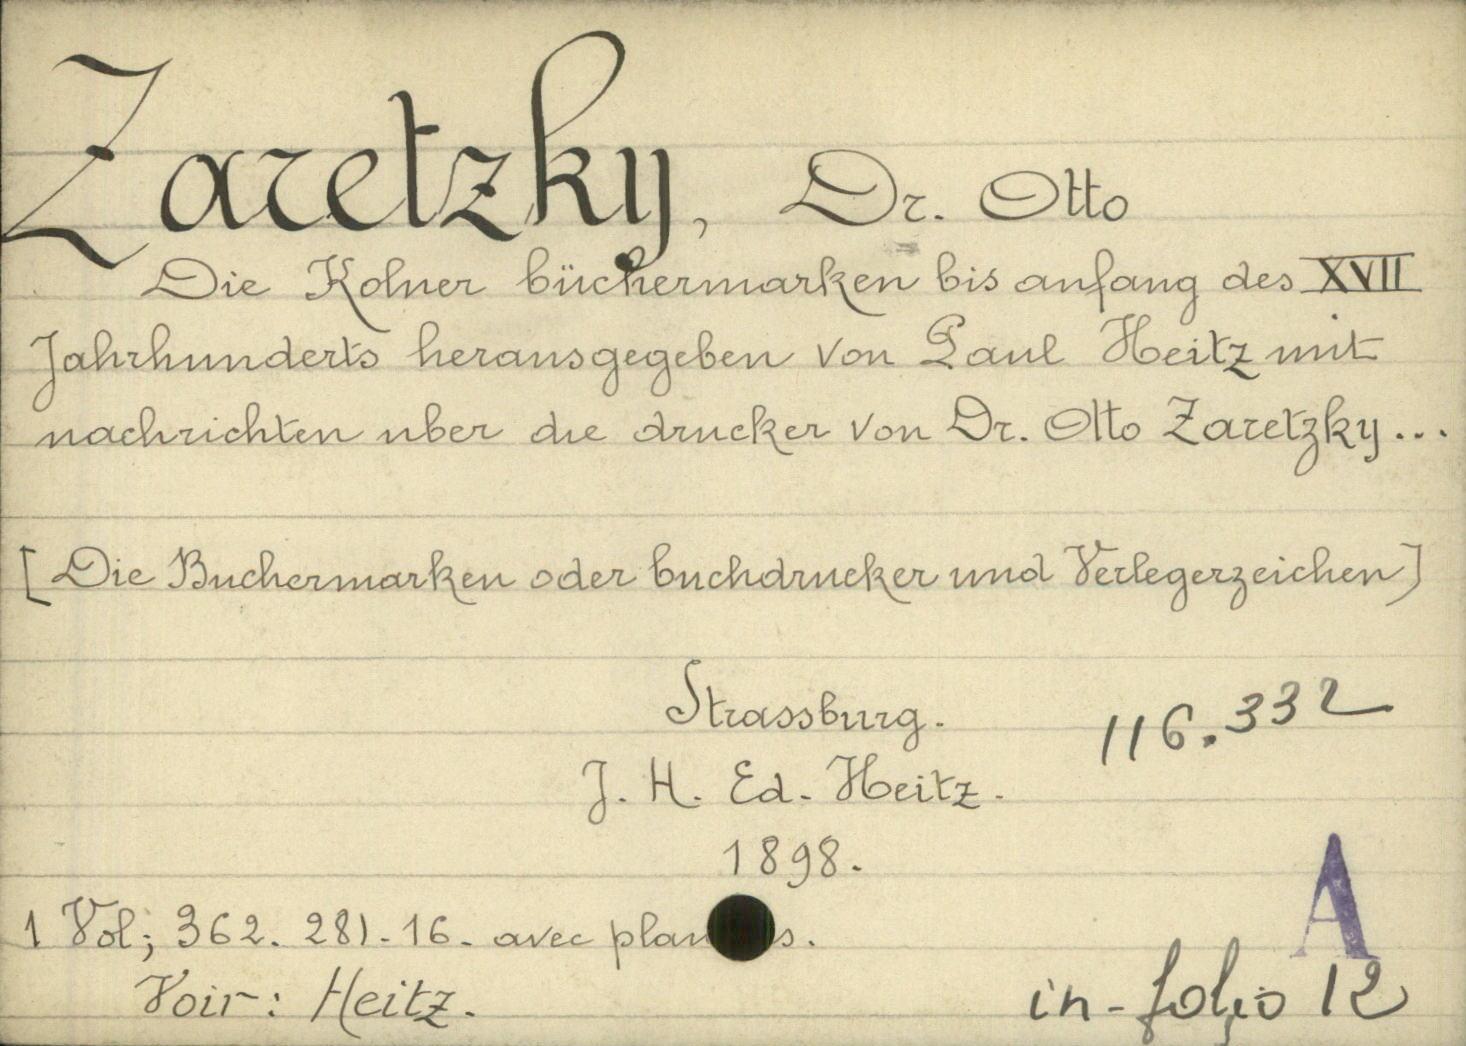 Zaretzky, Dr. Otto
Die Kolner büchermarken bis anfang des XVII
Jahrhunderts herausgegeben von Paul Heitz mit
nachrichten uber die drucker von Dr. Otto Zaretzky...
[Die Buchermarken oder buchdrucker und Verlegerzeichen]
Strassburg.
116.332
J. H. Ed. Heitz.
1898.
A
1 Vol; 362. 281. 16. avec
Voir: Heitz.
in-folio 12